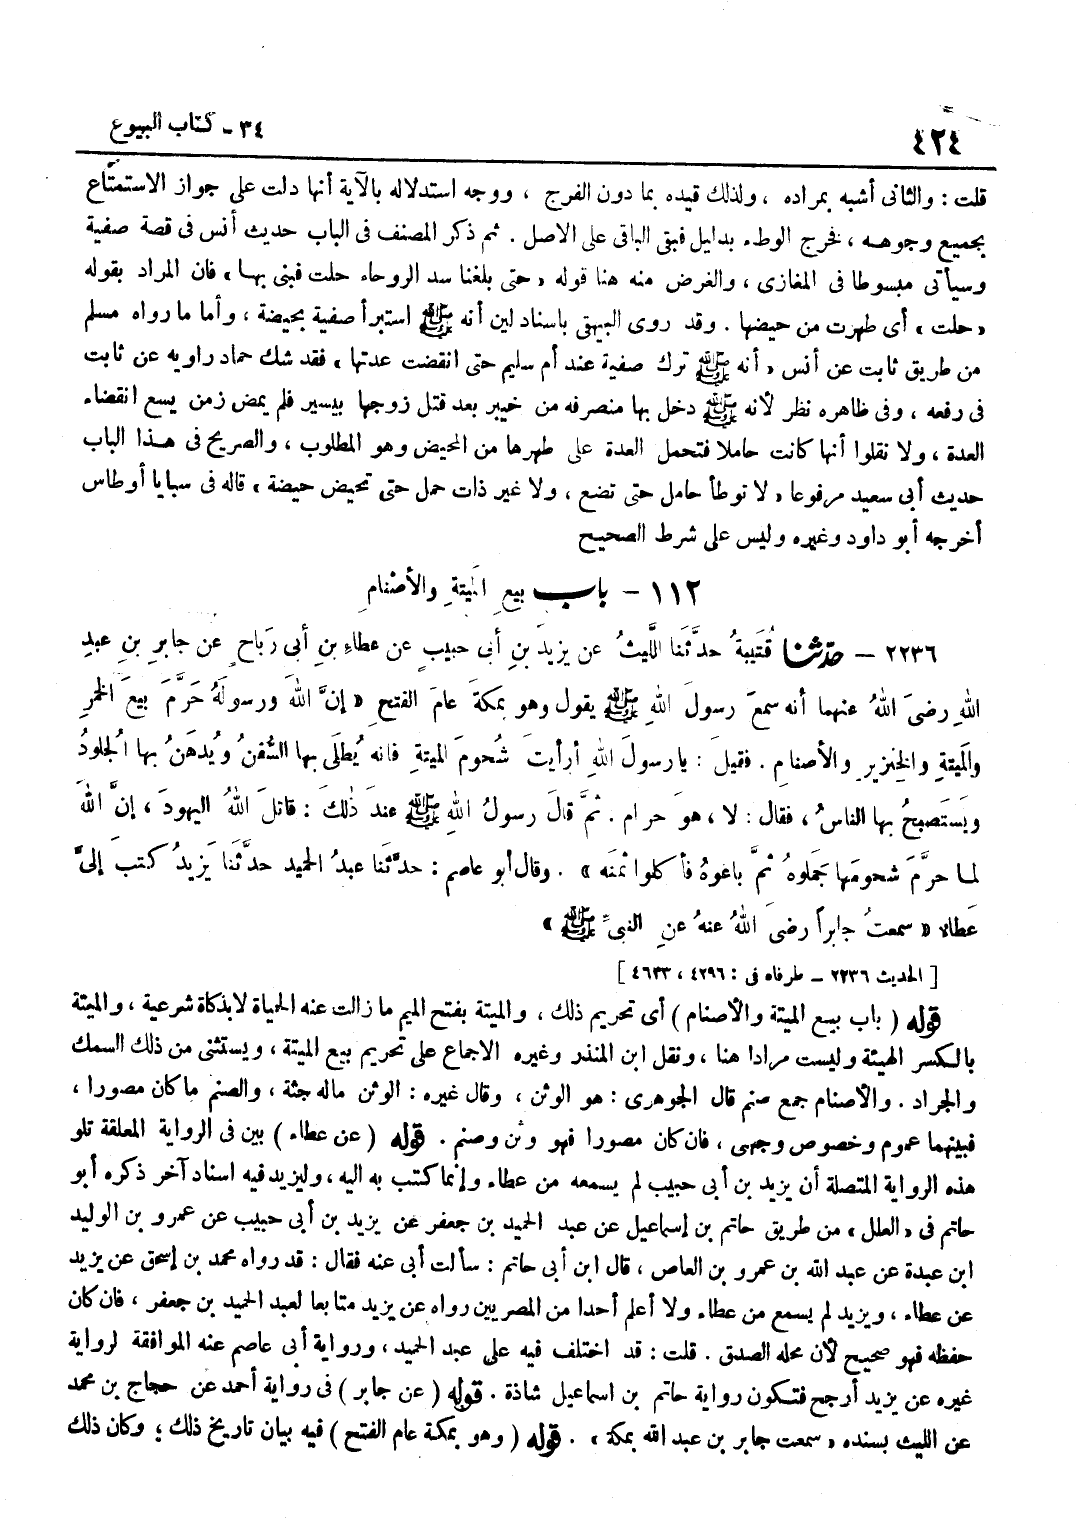 ٤٢٤
٣٤ - كتاب البيوع
قلت : والثانى أشبه بمراده ، ولذلك قيده بما دون الفرج ، ووجه استدلاله بالآية أنها دلت على جواز الاستمتاع
بجميع وجوهه ، فخرج الوطء بدليل فبقى الباقى على الاصل . ثم ذكر المصنف فى الباب حديث أنس فى قصة صفية
وسيأتى مبسوطا فى المغازى ، والغرض منه هنا قوله « حتى بلغنا سد الروحاء حلت فبنى بها » فان المراد بقوله
« حلت » أى طهرت من حيضها . وقد روى البيهقى باسناد لين أنه ﷺ استبرأ صفية بحيضة ، وأما ما رواه مسلم
من طريق ثابت عن أنس « أنه ﷺ ترك صفية عند أم سليم حتى انقضت عدتها » فقد شك حماد راويه عن ثابت
فى رفعه ، وفى ظاهره نظر لأنه ﷺ دخل بها منصرفه من خيبر بعد قتل زوجها بيسير فلم يمض زمن يسع انقضاء
العدة ، ولا نقلوا أنها كانت حاملا فتحمل العدة على طهرها من المحيض وهو المطلوب ، والصريح فى هذا الباب
حديث أبى سعيد مرفوعا « لا توطأ حامل حتى تضع ، ولا غير ذات حمل حتى تحيض حيضة » قاله فى سبايا أوطاس
أخرجه أبو داود وغيره وليس على شرط الصحيح
١١٢ - باب بيعِ الميتةِ والأصْنامِ
٢٢٣٦ - حدّثنا قُتَيبةُ حدَّثَنا اللَّيثُ عن يزيدَ بنِ أبى حبيبٍ عن عطاءِ بنِ أبى رَباحٍ عن جابرِ بنِ عبدِ
اللهِ رضىَ اللهُ عنهما أنه سمعَ رسولَ اللهِ ﷺ يقول وهو بمكةَ عامَ الفتحِ « إنَّ اللهَ ورسولَهُ حَرَّمَ بيعَ الخمرِ
والمَيتةِ والخِنزيرِ والأصنامِ . فقيلَ : يارسولَ اللهِ أرأيتَ شُحومَ الميتةِ فانه يُطلَى بها السُّفنُ ويُدهَنُ بها الجُلودُ
ويَستَصبِحُ بها الناسُ ، فقال : لا ، هوَ حرام . ثمَّ قالَ رسولُ اللهِ ﷺ عندَ ذٰلكَ : قاتلَ اللهُ اليهودَ ، إنَّ اللهَ
لما حرَّمَ شحومَها جَملوهُ ثمَّ باعوهُ فأكلوا ثمنَه » . وقال أبو عاصم : حدَّثَنا عبدُ الحميد حدَّثَنا يَزيدُ كتبَ إلىَّ
عطاء « سمعتُ جابراً رضىَ اللهُ عنهُ عنِ النبىِّ ﷺ »
[ الحديث ٢٢٣٦ - طرفاه فى : ٤٢٩٦ ، ٤٦٣٣ ]
قوله ( باب بيع الميتة والأصنام ) أى تحريم ذلك ، والميتة بفتح الميم ما زالت عنه الحياة لا بذكاة شرعية ، والميتة
بالكسر الهيئة وليست مرادا هنا ، ونقل ابن المنذر وغيره الاجماع على تحريم بيع الميتة ، ويستثنى من ذلك السمك
والجراد . والأصنام جمع صنم قال الجوهرى : هو الوثن ، وقال غيره : الوثن ماله جثة ، والصنم ما كان مصورا ،
فبينهما عموم وخصوص وجهى ، فان كان مصورا فهو وثن وصنم . قوله ( عن عطاء ) بين فى الرواية المعلقة تلو
هذه الرواية المتصلة أن يزيد بن أبى حبيب لم يسمعه من عطاء وإنما كتب به اليه ، وليزيد فيه اسناد آخر ذكره أبو
حاتم فى « العلل » من طريق حاتم بن إسماعيل عن عبد الحميد بن جعفر عن يزيد بن أبى حبيب عن عمرو بن الوليد
ابن عبدة عن عبد الله بن عمرو بن العاص ، قال ابن أبى حاتم : سألت أبى عنه فقال : قد رواه محمد بن إسحق عن يزيد
عن عطاء ، ويزيد لم يسمع من عطاء ولا أعلم أحدا من المصريين رواه عن يزيد متابعا لعبد الحميد بن جعفر ، فان كان
حفظه فهو صحيح لأن محله الصدق . قلت : قد اختلف فيه على عبد الحميد ، ورواية أبى عاصم عنه الموافقة لرواية
غيره عن يزيد أرجح فتكون رواية حاتم بن اسماعيل شاذة . قوله ( عن جابر ) فى رواية أحمد عن حجاج بن محمد
عن الليث بسنده « سمعت جابر بن عبد الله بمكة » . قوله ( وهو بمكة عام الفتح ) فيه بيان تاريخ ذلك ؛ وكان ذلك